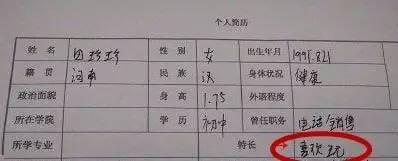 个人简历
姓 名 田珍珍 性 别 女 出生年月 1995.8.21
籍 贯 河南 民 族 汉 身体状况 健康
政治面貌 身 高 1.75 外语程度
所在学院 学 历 初中 曾任职务 电话销售
所学专业 特长 喜欢玩